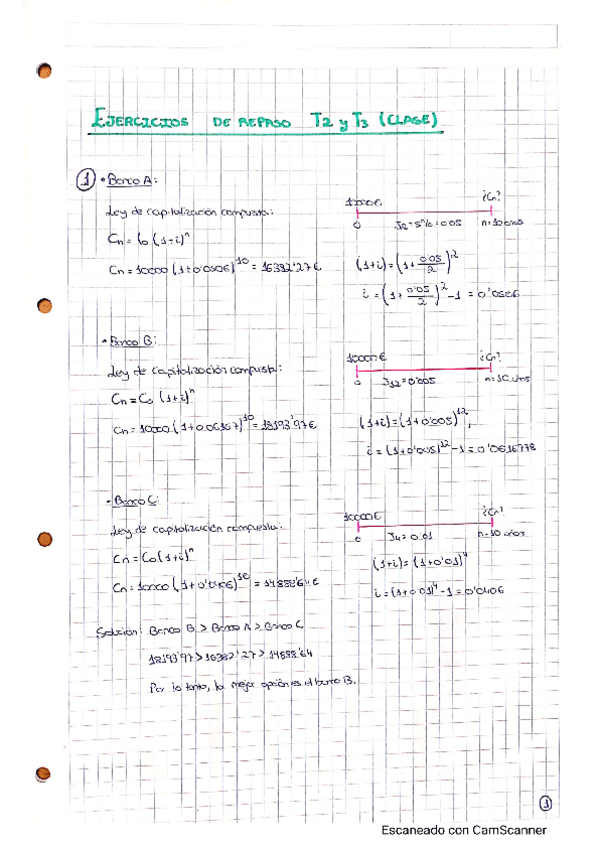 EJERCICIOS DE REPASO T2 y T3 (CLASE)
1 • Banco A:
Ley de capitalización compuesta:
Cn = Co (1+i)^n
Cn = 10000 (1+0'0506)^10 = 16382'27€
10000€ ¿Cn?
0 J2=5%=0'05 n=10 años
(1+i) = (1+ 0'05/2)^2
i = (1+ 0'05/2)^2 - 1 = 0'0506
• Banco B:
Ley de capitalización compuesta:
Cn = Co (1+i)^n
Cn = 10000 (1+0.06167)^10 = 18193'97€
10000€ ¿Cn?
0 J12=0'005 n=10 años
(1+i) = (1+0'005)^12;
i = (1+0'005)^12 - 1 = 0'0616778
• Banco C:
Ley de capitalización compuesta:
Cn = Co (1+i)^n
Cn = 10000 (1+0'0406)^10 = 14888'64€
10000€ ¿Cn?
0 J4=0.01 n=10 años
(1+i) = (1+0'01)^4
i = (1+0'01)^4 - 1 = 0'0406
Solución: Banco B > Banco A > Banco C
18193'97 > 16382'27 > 14888'64
Por lo tanto, la mejor opción es el banco B.
1
Escaneado con CamScanner